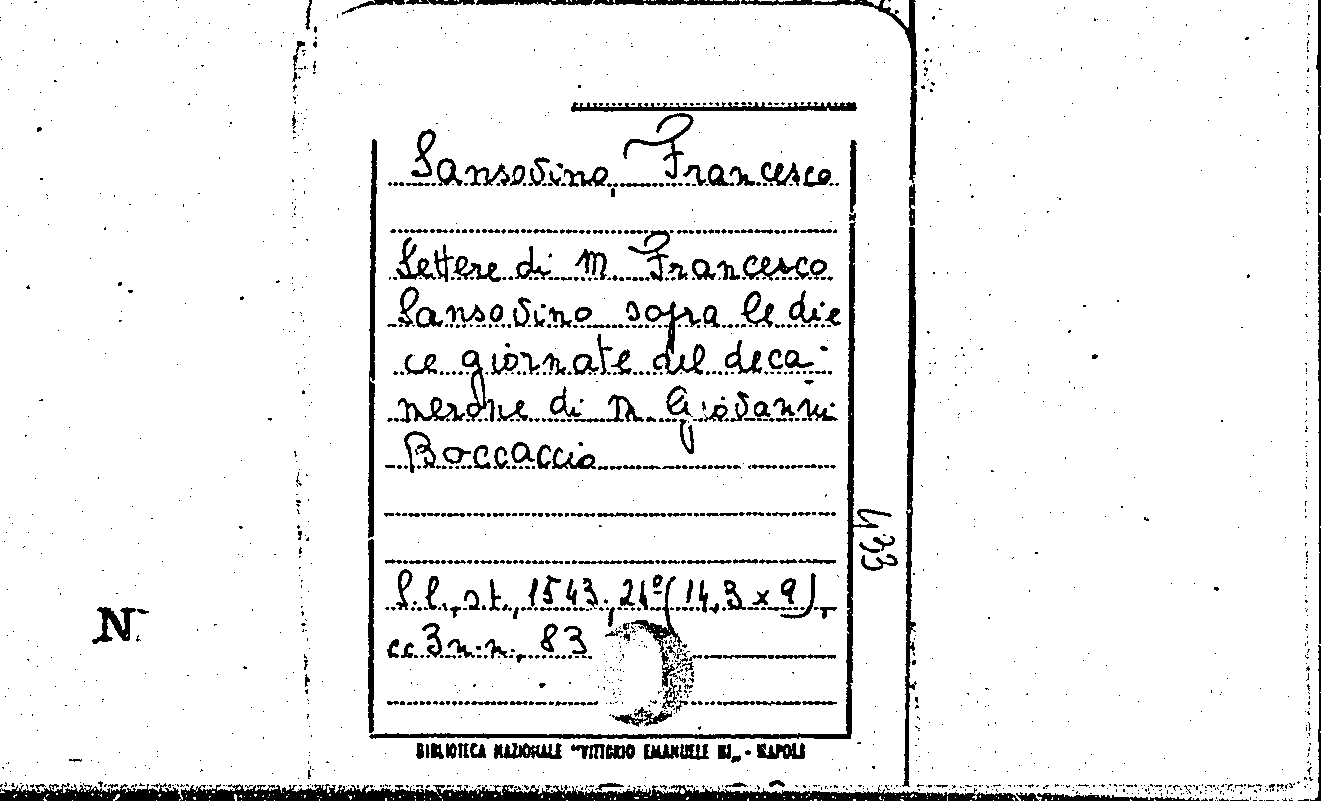 Sansovino, Francesco
Lettere di M Francesco
Sansovino sopra le die
ce giornate del deca-
merone di M. Giovanni
Boccaccio
433
S.l., s.t., 1543, 24º (14,3 x 9),
cc 3 n.n., 83
N
BIBLIOTECA NAZIONALE "VITTORIO EMANUELE III„ - NAPOLI